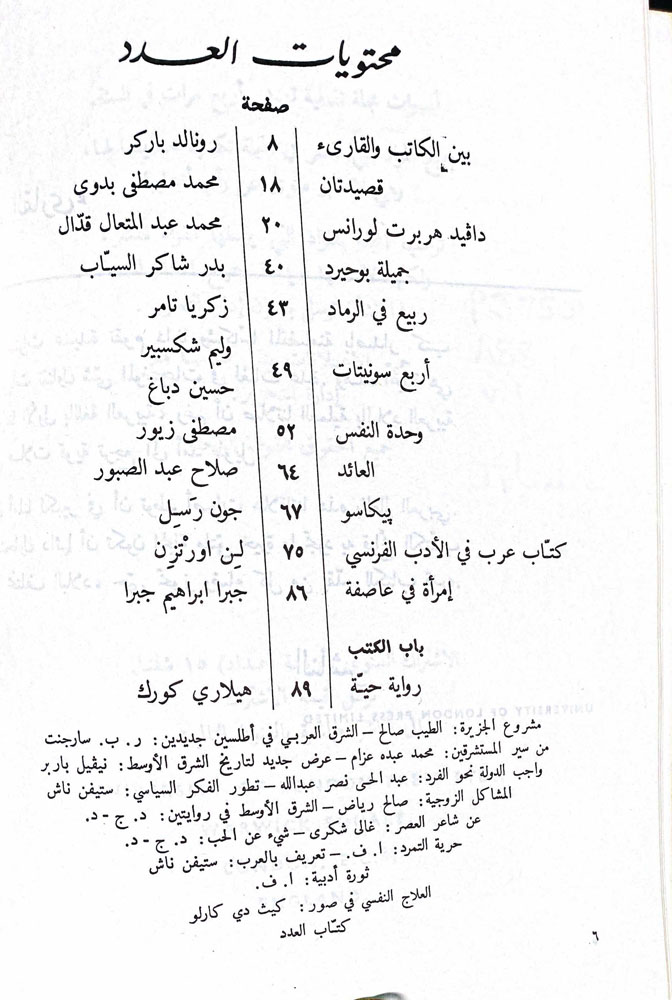 محتويات العدد
صفحة
بين الكاتب والقارىء ٨ رونالد باركر
قصيدتان ١٨ محمد مصطفى بدوى
داڤيد هربرت لورانس ٢٠ محمد عبد المتعال قدّال
جميلة بوحيرد ٤٠ بدر شاكر السيّاب
ربيع في الرماد ٤٣ زكريا تامر
أربع سونيتات ٤٩ وليم شكسبير
حسين دباغ
وحدة النفس ٥٢ مصطفى زيور
العائد ٦٤ صلاح عبد الصبور
پيكاسو ٦٧ جون رَسَـِل
كتّاب عرب في الأدب الفرنسي ٧٥ لـِن اورْتـْزِن
إمرأة في عاصفة ٨٦ جبرا ابراهيم جبرا
باب الكتب
رواية حيّة ٨٩ هيلاري كورك
مشروع الجزيرة: الطيب صالح – الشرق العربي في أطلسين جديدين: ر. ب. سارجنت
من سير المستشرقين: محمد عبده عزام – عرض جديد لتاريخ الشرق الأوسط: نيڤيل باربر
واجب الدولة نحو الفرد: عبد الحى نصر عبدالله – تطور الفكر السياسي: ستيفن ناش
المشاكل الزوجية: صالح رياض – الشرق الأوسط في روايتين: د. ج – د.
عن شاعر العصر: غالى شكرى – شيء عن الحب: د. ج – د.
حرية التمرد: ا. ف. – تعريف بالعرب: ستيفن ناش
ثورة أدبية: ا. ف.
العلاج النفسي في صور: كيث دي كارلو
كتّاب العدد
٦